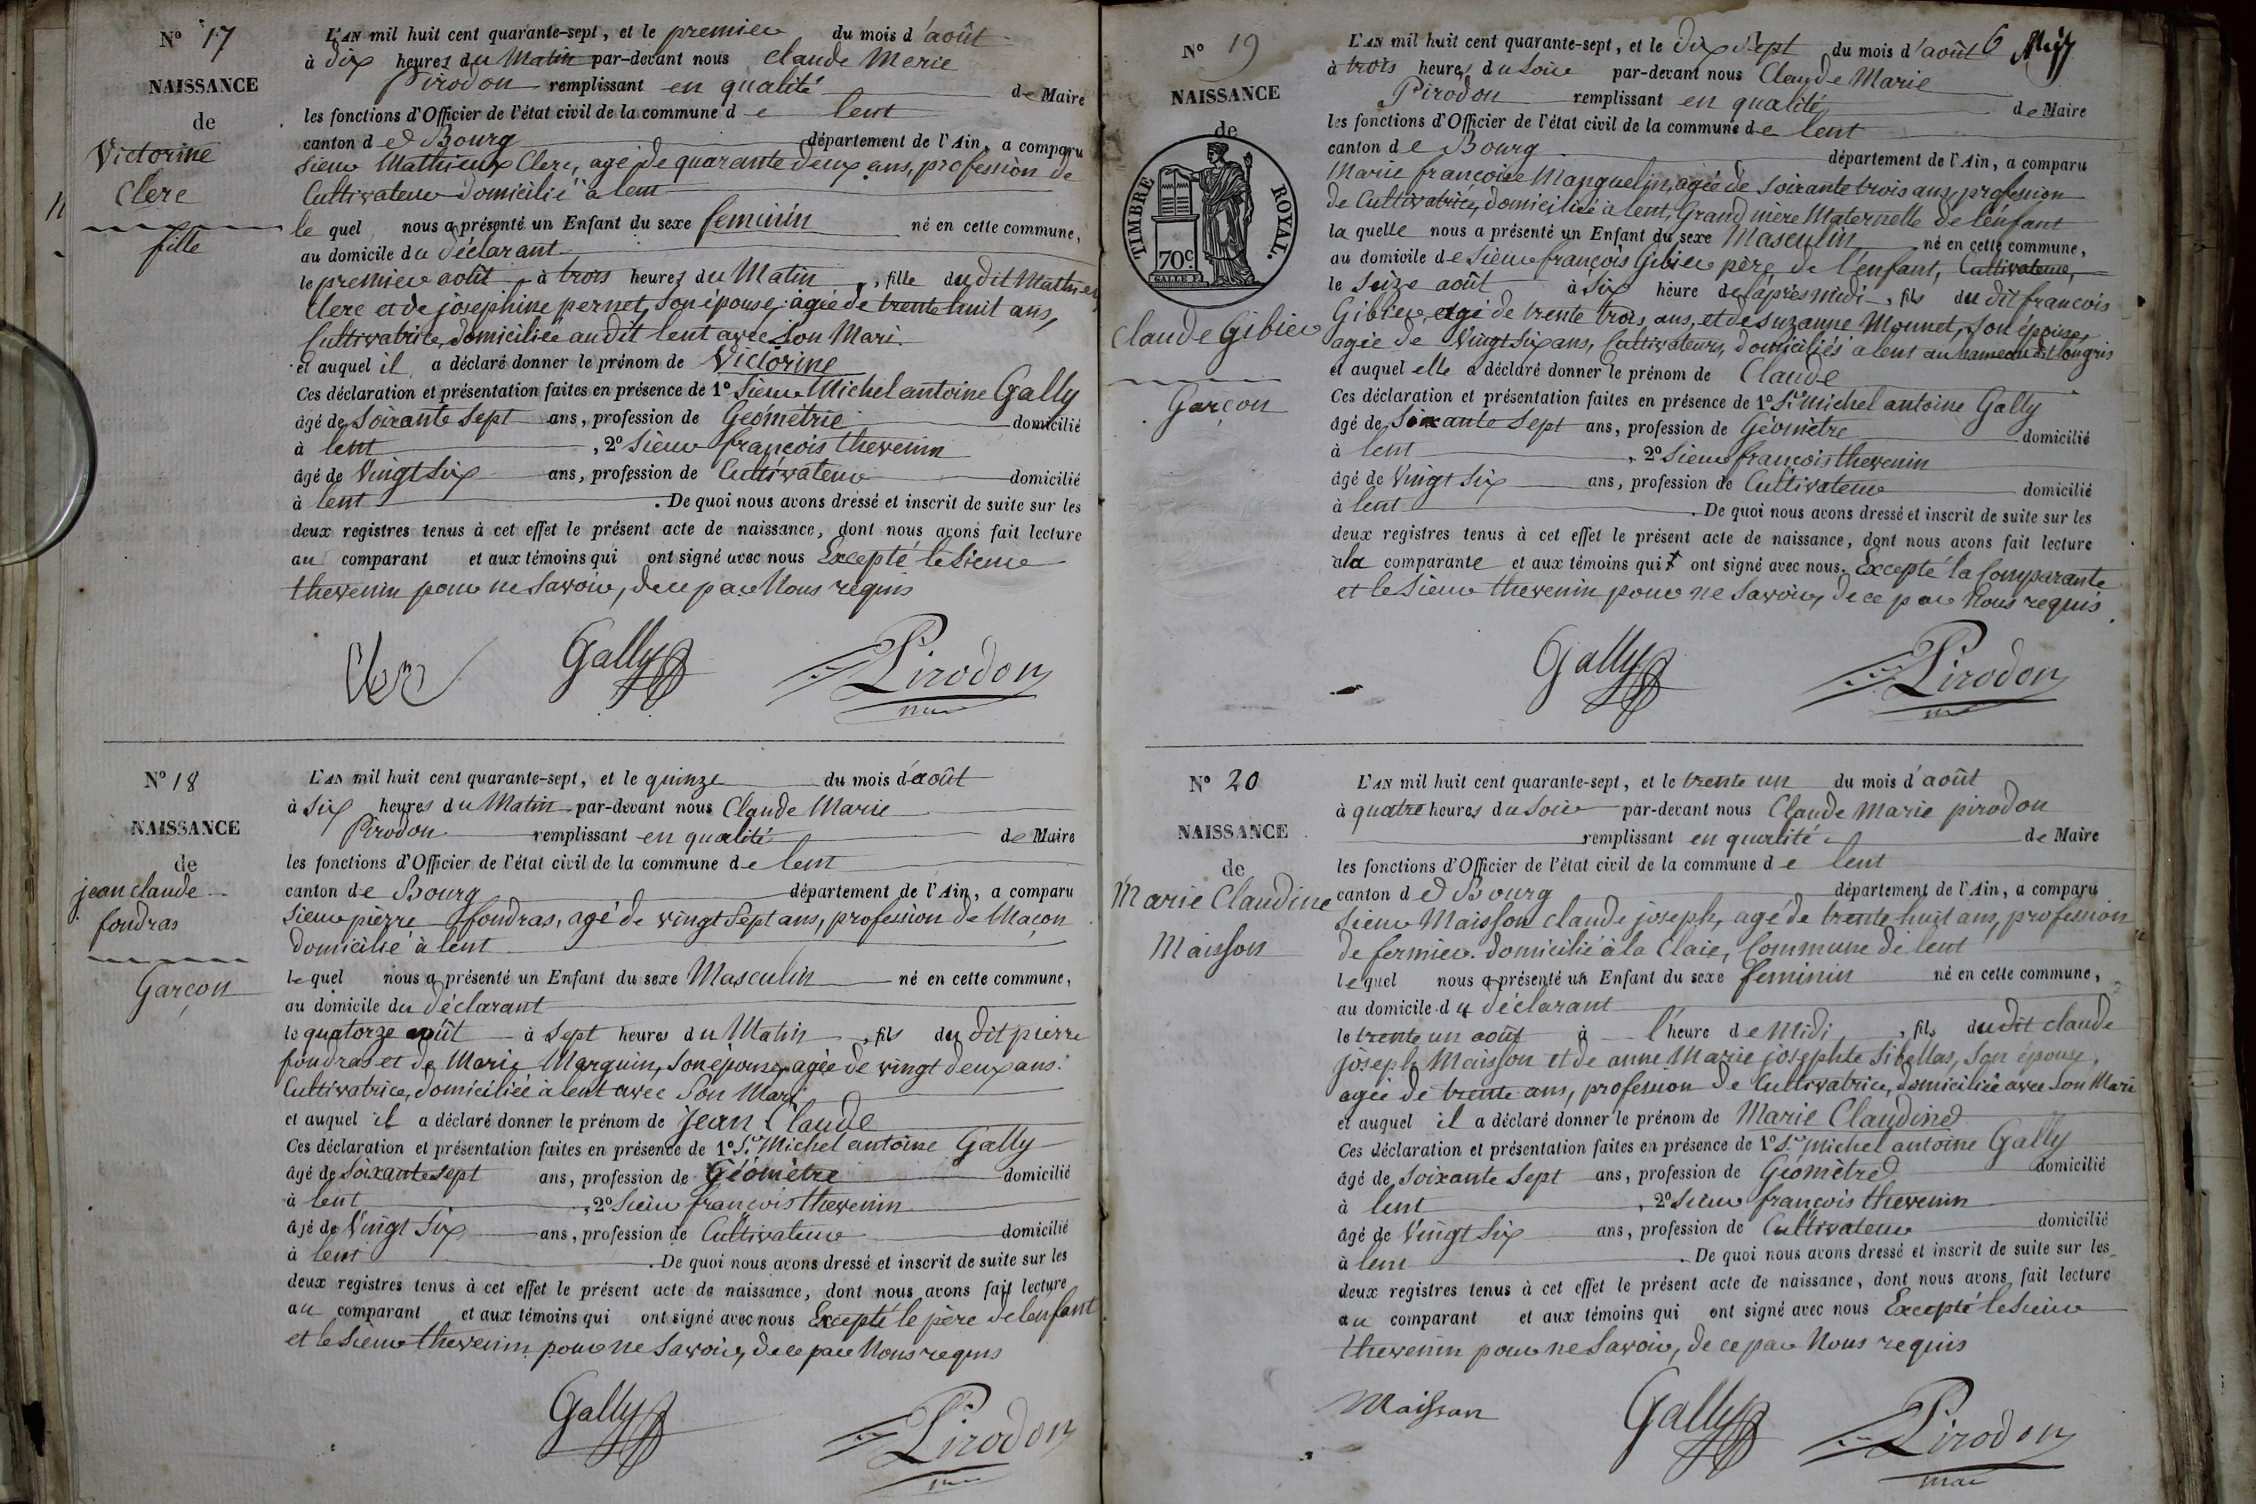 N° 17
NAISSANCE
de
Victorine
Clerc
fille
L'AN mil huit cent quarante-sept, et le premier du mois d'août
à dix heures du Matin par-devant nous Claude Marie
Pirodon remplissant en qualité de Maire
les fonctions d'Officier de l'état civil de la commune de lent
canton de Bourg département de l'Ain, a comparu
Sieur Mathieux Clerc, agé de quarante deux ans, profession de
Cultivateur domicilié à lent
le quel nous a présenté un Enfant du sexe feminin né en cette commune,
au domicile du déclarant
le premier août à trois heures du Matin, fille du dit Mathieu
Clerc et de josephine pernet, son épouse, agée de trente huit ans,
Cultivatrice, domiciliée au dit lent avec Son Mari.
et auquel il a déclaré donner le prénom de Victorine
Ces déclaration et présentation faites en présence de 1° Sieur Michel antoine Gally
âgé de Soixante Sept ans, profession de Géométrie domicilié
à lent, 2° Sieur françois thevenin
âgé de Vingt Six ans, profession de Cultivateur domicilié
à lent. De quoi nous avons dressé et inscrit de suite sur les
deux registres tenus à cet effet le présent acte de naissance, dont nous avons fait lecture
au comparant et aux témoins qui ont signé avec nous Excepté le Sieur
thevenin pour ne Savoir, de ce par Nous requis
Clerc Gally Pirodon
N° 18
NAISSANCE
de
jean claude
foudras
Garçon
L'AN mil huit cent quarante-sept, et le quinze du mois d'août
à Six heures du Matin par-devant nous Claude Marie
Pirodon remplissant en qualité de Maire
les fonctions d'Officier de l'état civil de la commune de lent
canton de Bourg département de l'Ain, a comparu
Sieur pierre foudras, agé de vingt Sept ans, profession de Maçon
domicilié à lent
le quel nous a présenté un Enfant du sexe Masculin né en cette commune,
au domicile du déclarant
le quatorze août à Sept heures du Matin, fils du dit pierre
foudras et de Marie Marguin, Son épouse, agée de vingt deux ans.
Cultivatrice, domiciliée à lent avec Son Mari
et auquel il a déclaré donner le prénom de Jean Claude
Ces déclaration et présentation faites en présence de 1° Sr Michel antoine Gally
âgé de Soixante Sept ans, profession de Géomètre domicilié
à lent, 2° Sieur françois thevenin
âgé de Vingt Six ans, profession de Cultivateur domicilié
à lent. De quoi nous avons dressé et inscrit de suite sur les
deux registres tenus à cet effet le présent acte de naissance, dont nous avons fait lecture
au comparant et aux témoins qui ont signé avec nous Excepté le père de lenfant
et le Sieur thevenin pour ne Savoir, de ce par Nous requis
Gally Pirodon
N° 19
NAISSANCE
de
TIMBRE ROYAL.
70c
Claude Gibier
Garçon
L'AN mil huit cent quarante-sept, et le dix Sept du mois d'août 6
à trois heures du Soir par-devant nous Claude Marie
Pirodon remplissant en qualité de Maire
les fonctions d'Officier de l'état civil de la commune de lent
canton de Bourg département de l'Ain, a comparu
Marie françoise Manguelin, agée de Soixante trois ans, profession
de Cultivatrice, domiciliée à lent, Grand mère Maternelle de l'enfant
la quelle nous a présenté un Enfant du sexe Masculin né en cette commune,
au domicile de Sieur françois Gibier père de l'enfant, Cultivateur,
le Seize août à Six heure de l'après midi, fils du dit françois
Gibier, agé de trente trois ans, et de Suzanne Monnet, Son épouse,
agée de Vingt Six ans, Cultivateurs, domiciliés à lent au hameau dit longris
et auquel elle a déclaré donner le prénom de Claude
Ces déclaration et présentation faites en présence de 1° Sr Michel antoine Gally
âgé de Soixante Sept ans, profession de Géomètre domicilié
à lent, 2° Sieur françois thevenin
âgé de Vingt Six ans, profession de Cultivateur domicilié
à lent. De quoi nous avons dressé et inscrit de suite sur les
deux registres tenus à cet effet le présent acte de naissance, dont nous avons fait lecture
à la comparante et aux témoins qui ont signé avec nous. Excepté la Comparante
et le Sieur thevenin pour ne Savoir, de ce par Nous requis
Gally Pirodon
N° 20
NAISSANCE
de
Marie Claudine
Maisson
L'AN mil huit cent quarante-sept, et le trente un du mois d'août
à quatre heures du Soir par-devant nous Claude Marie pirodon
remplissant en qualité de Maire
les fonctions d'Officier de l'état civil de la commune de lent
canton de Bourg département de l'Ain, a comparu
Sieur Maisson claude joseph, agé de trente huit ans, profession
de fermier. domicilié à la Claie, Commune de lent
le quel nous a présenté un Enfant du sexe feminin né en cette commune,
au domicile du déclarant
le trente un août à l'heure de Midi, fils du dit claude
joseph Maisson et de anne Marie josephte Sibellas, Son épouse,
agée de trente ans, profession de Cultivatrice, domiciliée avec Son Mari
et auquel il a déclaré donner le prénom de Marie Claudine
Ces déclaration et présentation faites en présence de 1° Sr michel antoine Gally
âgé de Soixante Sept ans, profession de Géomètre domicilié
à lent, 2° Sieur françois thevenin
âgé de Vingt Six ans, profession de Cultivateur domicilié
à lent. De quoi nous avons dressé et inscrit de suite sur les
deux registres tenus à cet effet le présent acte de naissance, dont nous avons fait lecture
au comparant et aux témoins qui ont signé avec nous Excepté le Sieur
thevenin pour ne Savoir, de ce par Nous requis
Maisson Gally Pirodon